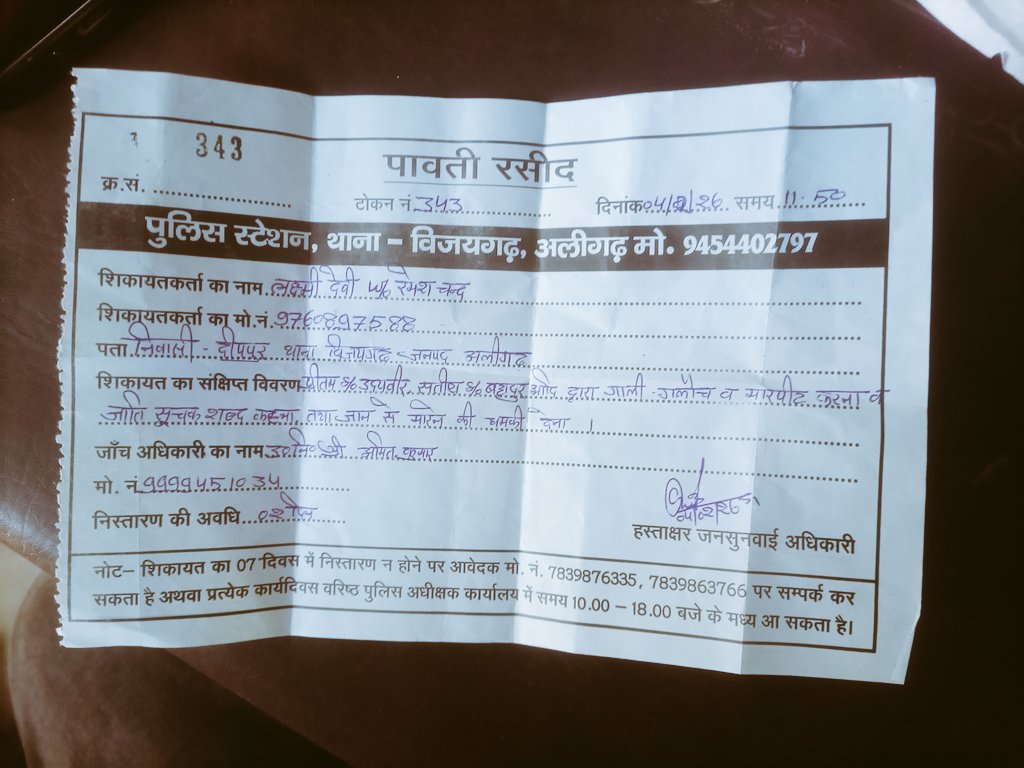 343
पावती रसीद
क्र.सं. ..............................
टोकन नं 343 दिनांक 04/2/26 समय 11:50
पुलिस स्टेशन, थाना – विजयगढ़, अलीगढ़ मो. 9454402797
शिकायतकर्ता का नाम लक्ष्मी देवी w/o रमेश चन्द
शिकायतकर्ता का मो.नं. 9760897588
पता निवासी - दीपपुर थाना विजयगढ जनपद अलीगढ
शिकायत का संक्षिप्त विवरण प्रीतम s/o उदयवीर, सतीश s/o बहादुर आदि द्वारा गाली-गलौच व मारपीट करना व
जाति सूचक शब्द कहना तथा जान से मारने की धमकी देना ।
जाँच अधिकारी का नाम उ०नि० श्री अमित कुमार
मो. नं 9999451034
निस्तारण की अवधि
हस्ताक्षर जनसुनवाई अधिकारी
नोट– शिकायत का 07 दिवस में निस्तारण न होने पर आवेदक मो. नं. 7839876335, 7839863766 पर सम्पर्क कर
सकता है अथवा प्रत्येक कार्यदिवस वरिष्ठ पुलिस अधीक्षक कार्यालय में समय 10.00 – 18.00 बजे के मध्य आ सकता है।